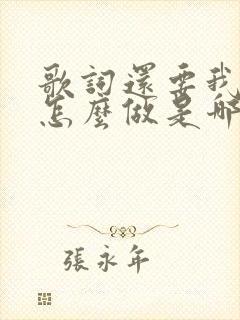 歌詞還要我
怎麼做是那
張永年